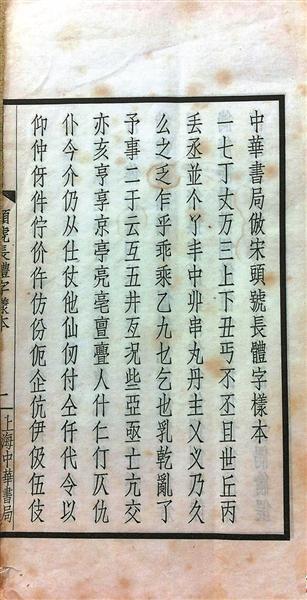 中華書局倣宋頭號長體字樣本
一七丁丈万三上下丑丐不丕且世丘丙
丟丞並个丫丰中丱串丸丹主乂义乃久
么之乏乍乎乖乘乙九乜乞也乳乾亂了
予事二亍云互五井亙况些亞亟亡亢交
亦亥亨享京亭亮亳亶亹人什仁仃仄仇
仆今介仍从仕仗他仙仞付仝仟代令以
仰仲伢件佇价仵仿份伌企伉伊伋伍伎
頭號長體字樣本
二
上海中華書局